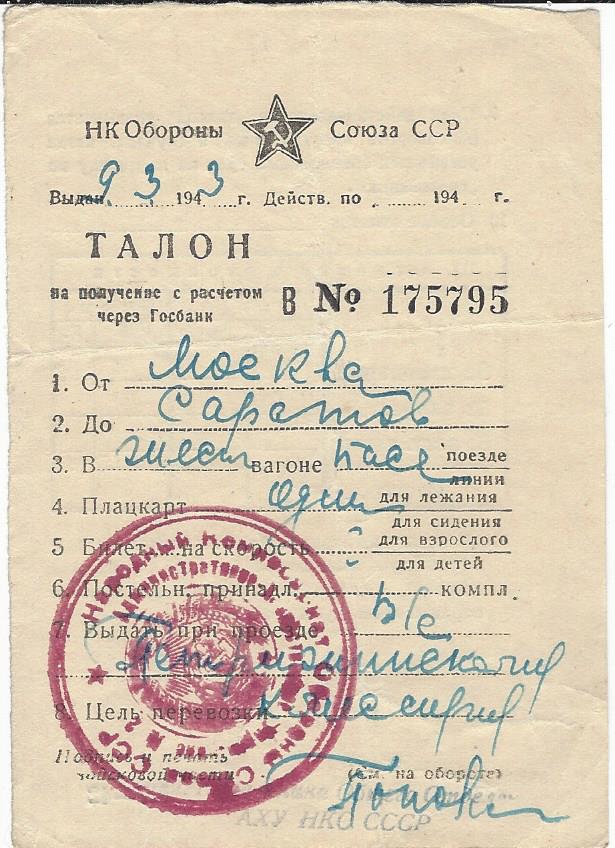 НК Обороны Союза ССР
Выдан 9.3 1943 г. Действ. по 194 г.
ТАЛОН
на получение с расчетом
через Госбанк
В № 175795
1. От Москва
2. До Саратов
3. В вагоне поезде
линии
4. Плацкарт один для лежания
для сидения
5 Билет на скорость для взрослого
для детей
6. Постельн. принадл. компл.
7. Выдать при проезде
8. Цель перевозки
Подпись и печать
войсковой части
(См. на обороте)
АХУ НКО СССР
Народный Комиссариат Обороны Союза ССР